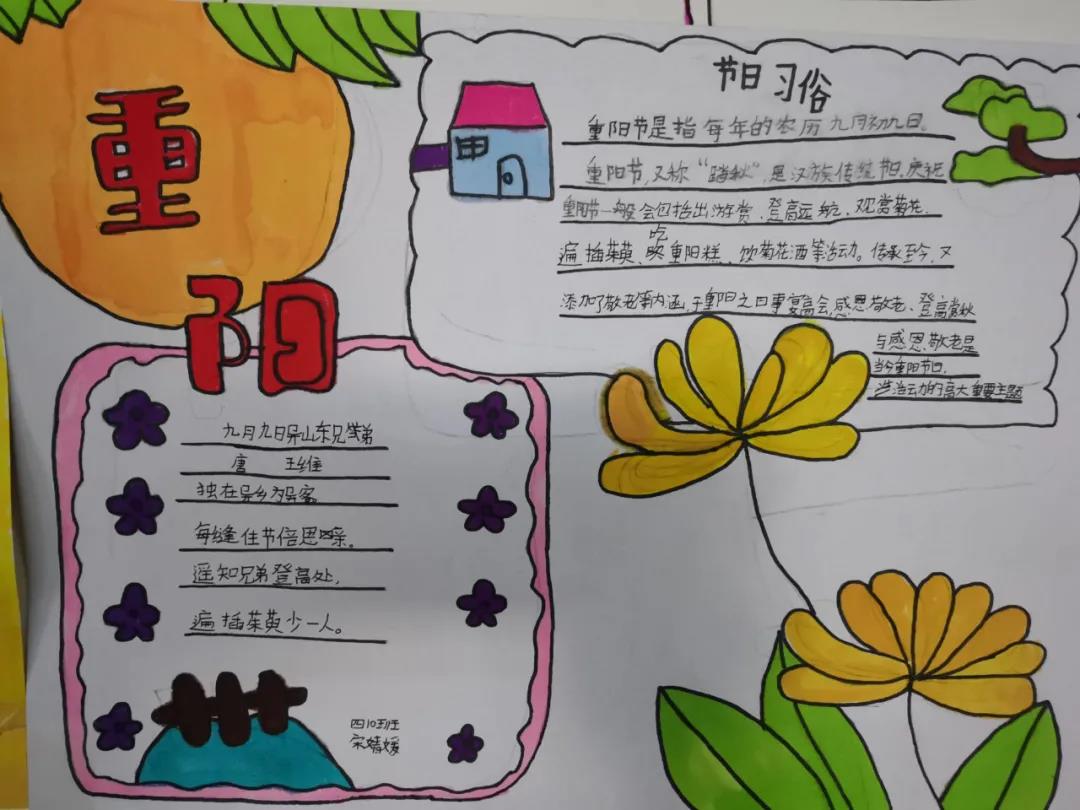 重阳
节日习俗
重阳节是指每年的农历九月初九日。
重阳节,又称“踏秋”,是汉族传统节日。庆祝
重阳节一般会包括出游赏、登高远眺、观赏菊花、
遍插茱萸、吃重阳糕、饮菊花酒等活动。传承至今,又
添加了敬老等内涵,于重阳之日享宴高会,感恩敬老、登高赏秋
与感恩敬老是
当今重阳节日
活动的高大重要主题
九月九日异山东兄弟
唐 王维
独在异乡为异客
每缝住节倍思亲。
遥知兄弟登高处,
遍插茱萸少一人。
四10班
宋婧媛